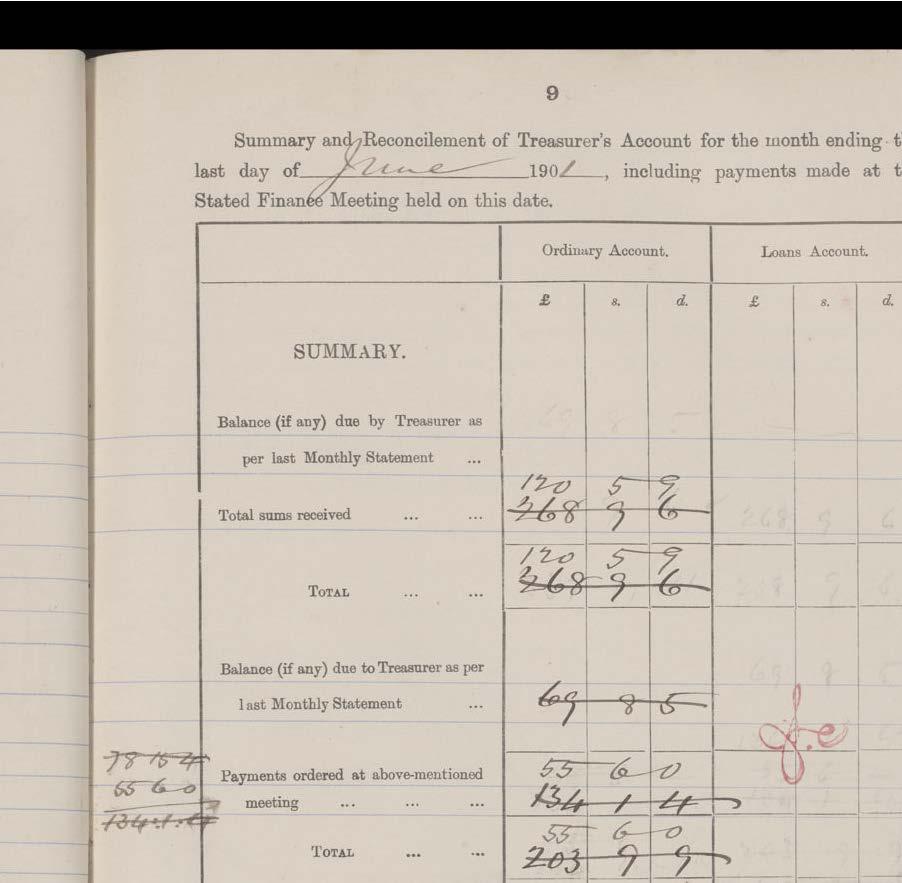 9
Summary and Reconcilement of Treasurer's Account for the month ending t
last day of June 1901, including payments made at t
Stated Finance Meeting held on this date.
Ordinary Account. Loans Account.
£ s. d. £ s. d.
SUMMARY.
Balance (if any) due by Treasurer as
per last Monthly Statement ...
120 5 9
Total sums received ... ... 268 9 6
120 5 9
TOTAL ... ... 268 9 6
Balance (if any) due to Treasurer as per
last Monthly Statement ... 69 8 5
J.C
78 15 4
55 6 0
Payments ordered at above-mentioned
55 6 0
meeting ... ... ... 134 1 4
134.1.4
55 6 0
TOTAL ... ... 203 9 9